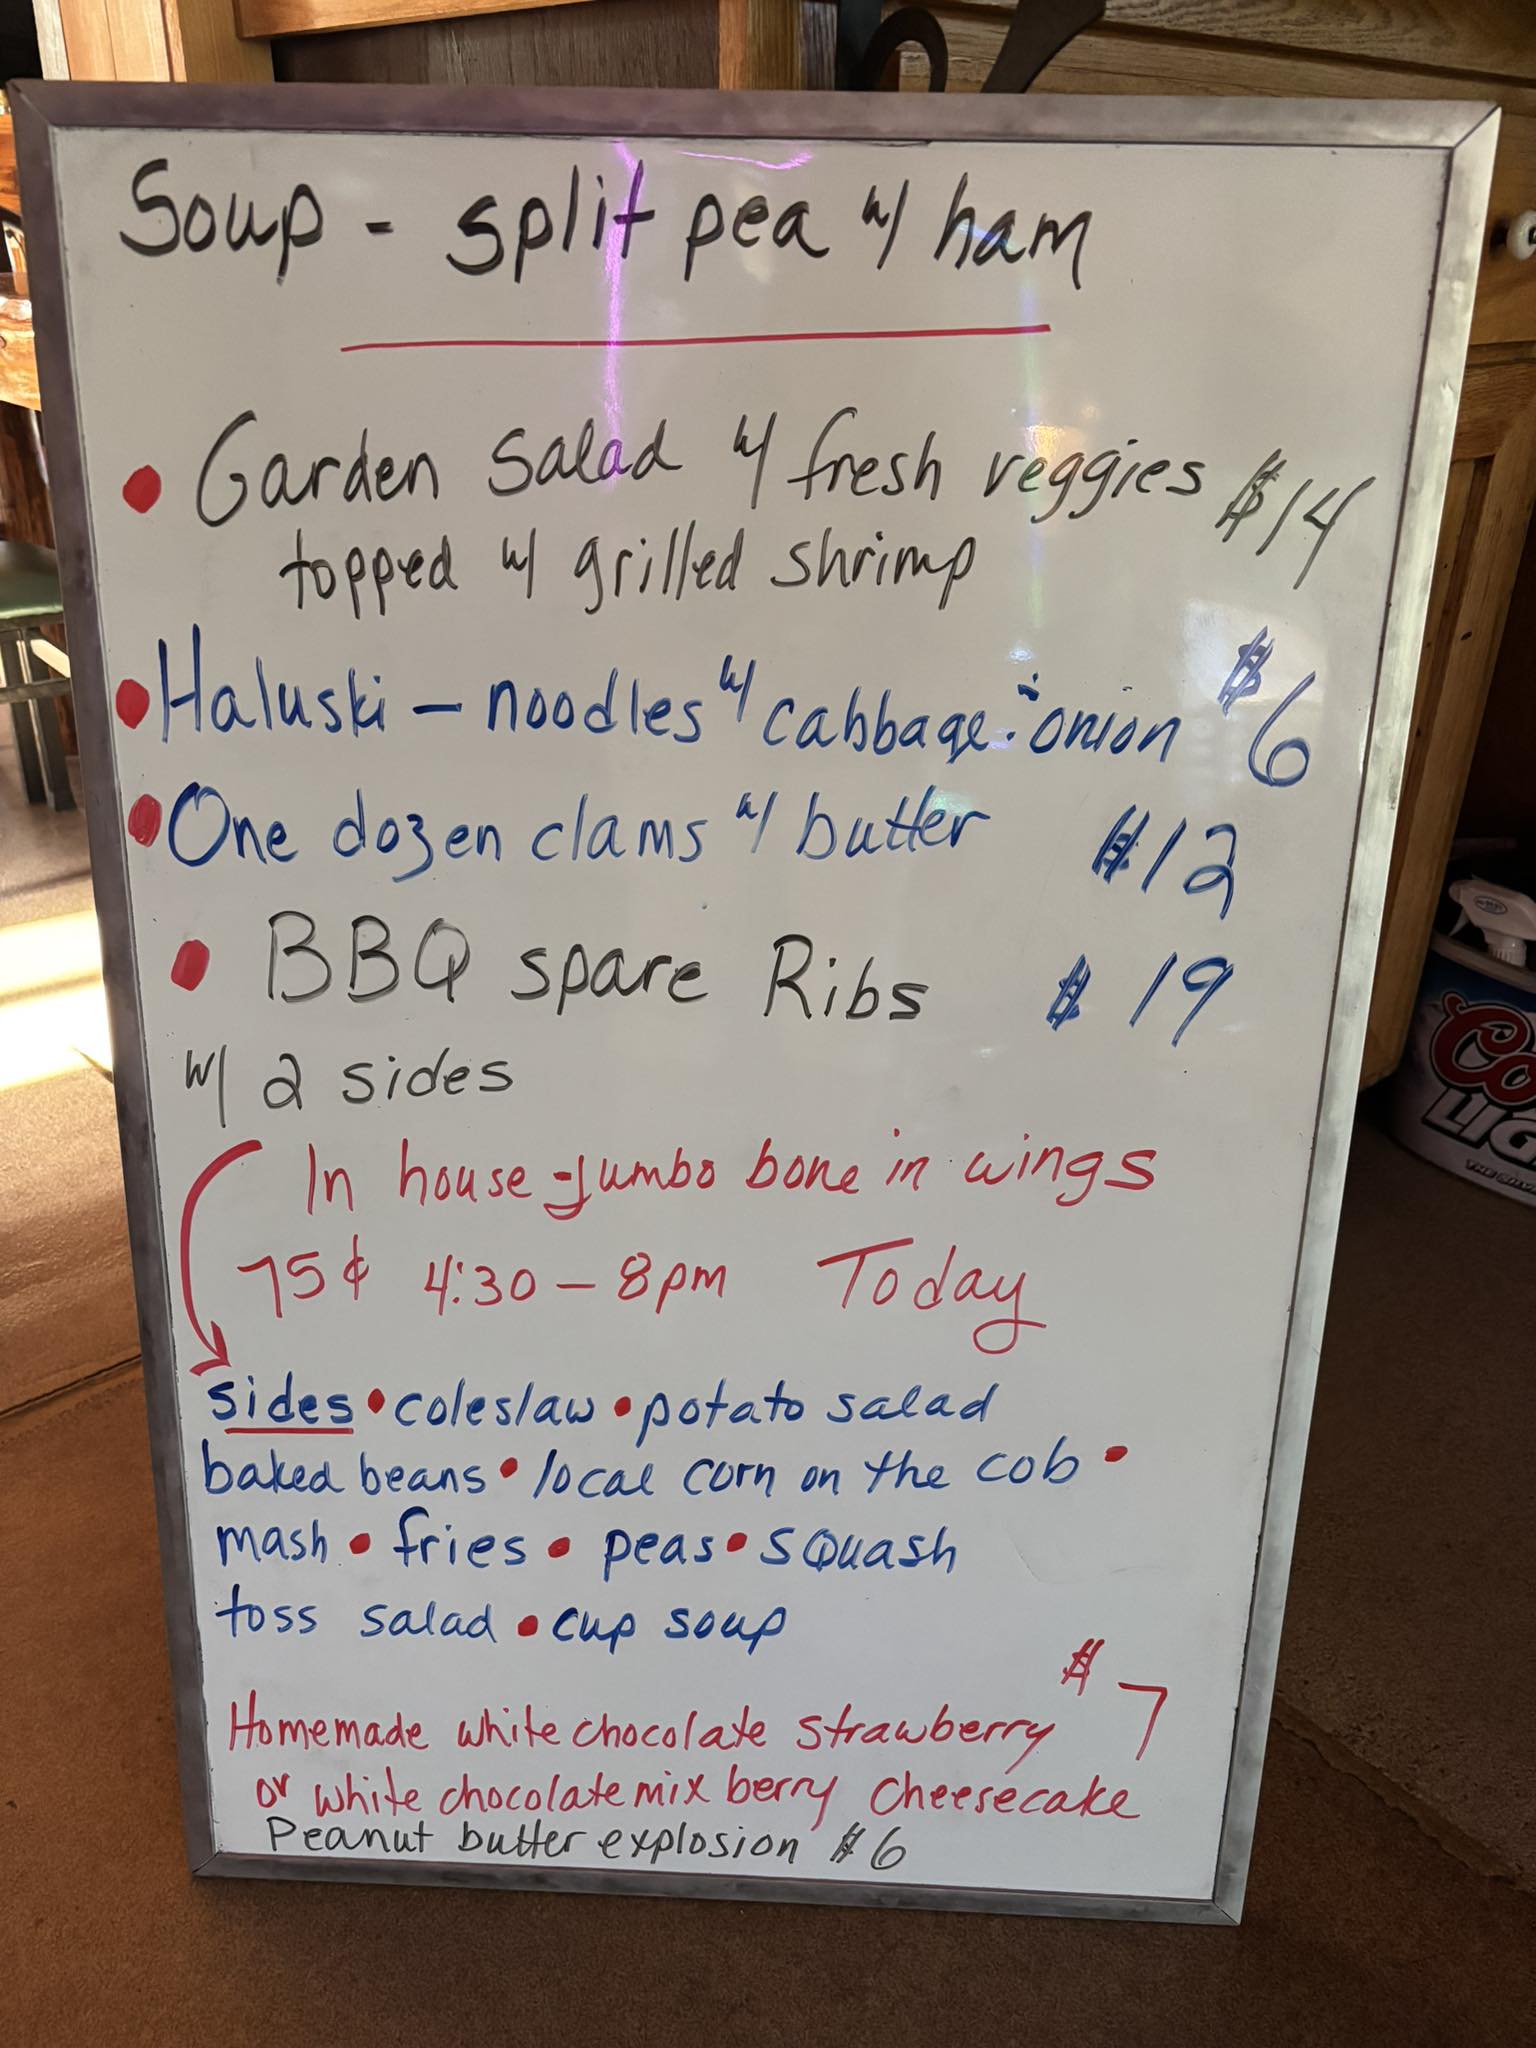 Soup - split pea w/ ham
• Garden Salad w/ fresh veggies $14
topped w/ grilled shrimp
• Haluski - noodles w/ cabbage & onion $6
• One dozen clams w/ butter $12
• BBQ spare Ribs $19
w/ 2 sides
In house - Jumbo bone in wings
75¢ 4:30 - 8pm Today
sides • coleslaw • potato salad
baked beans • local corn on the cob •
mash • fries • peas • squash
toss salad • cup soup
$7
Homemade white chocolate strawberry
or white chocolate mix berry cheesecake
Peanut butter explosion $6